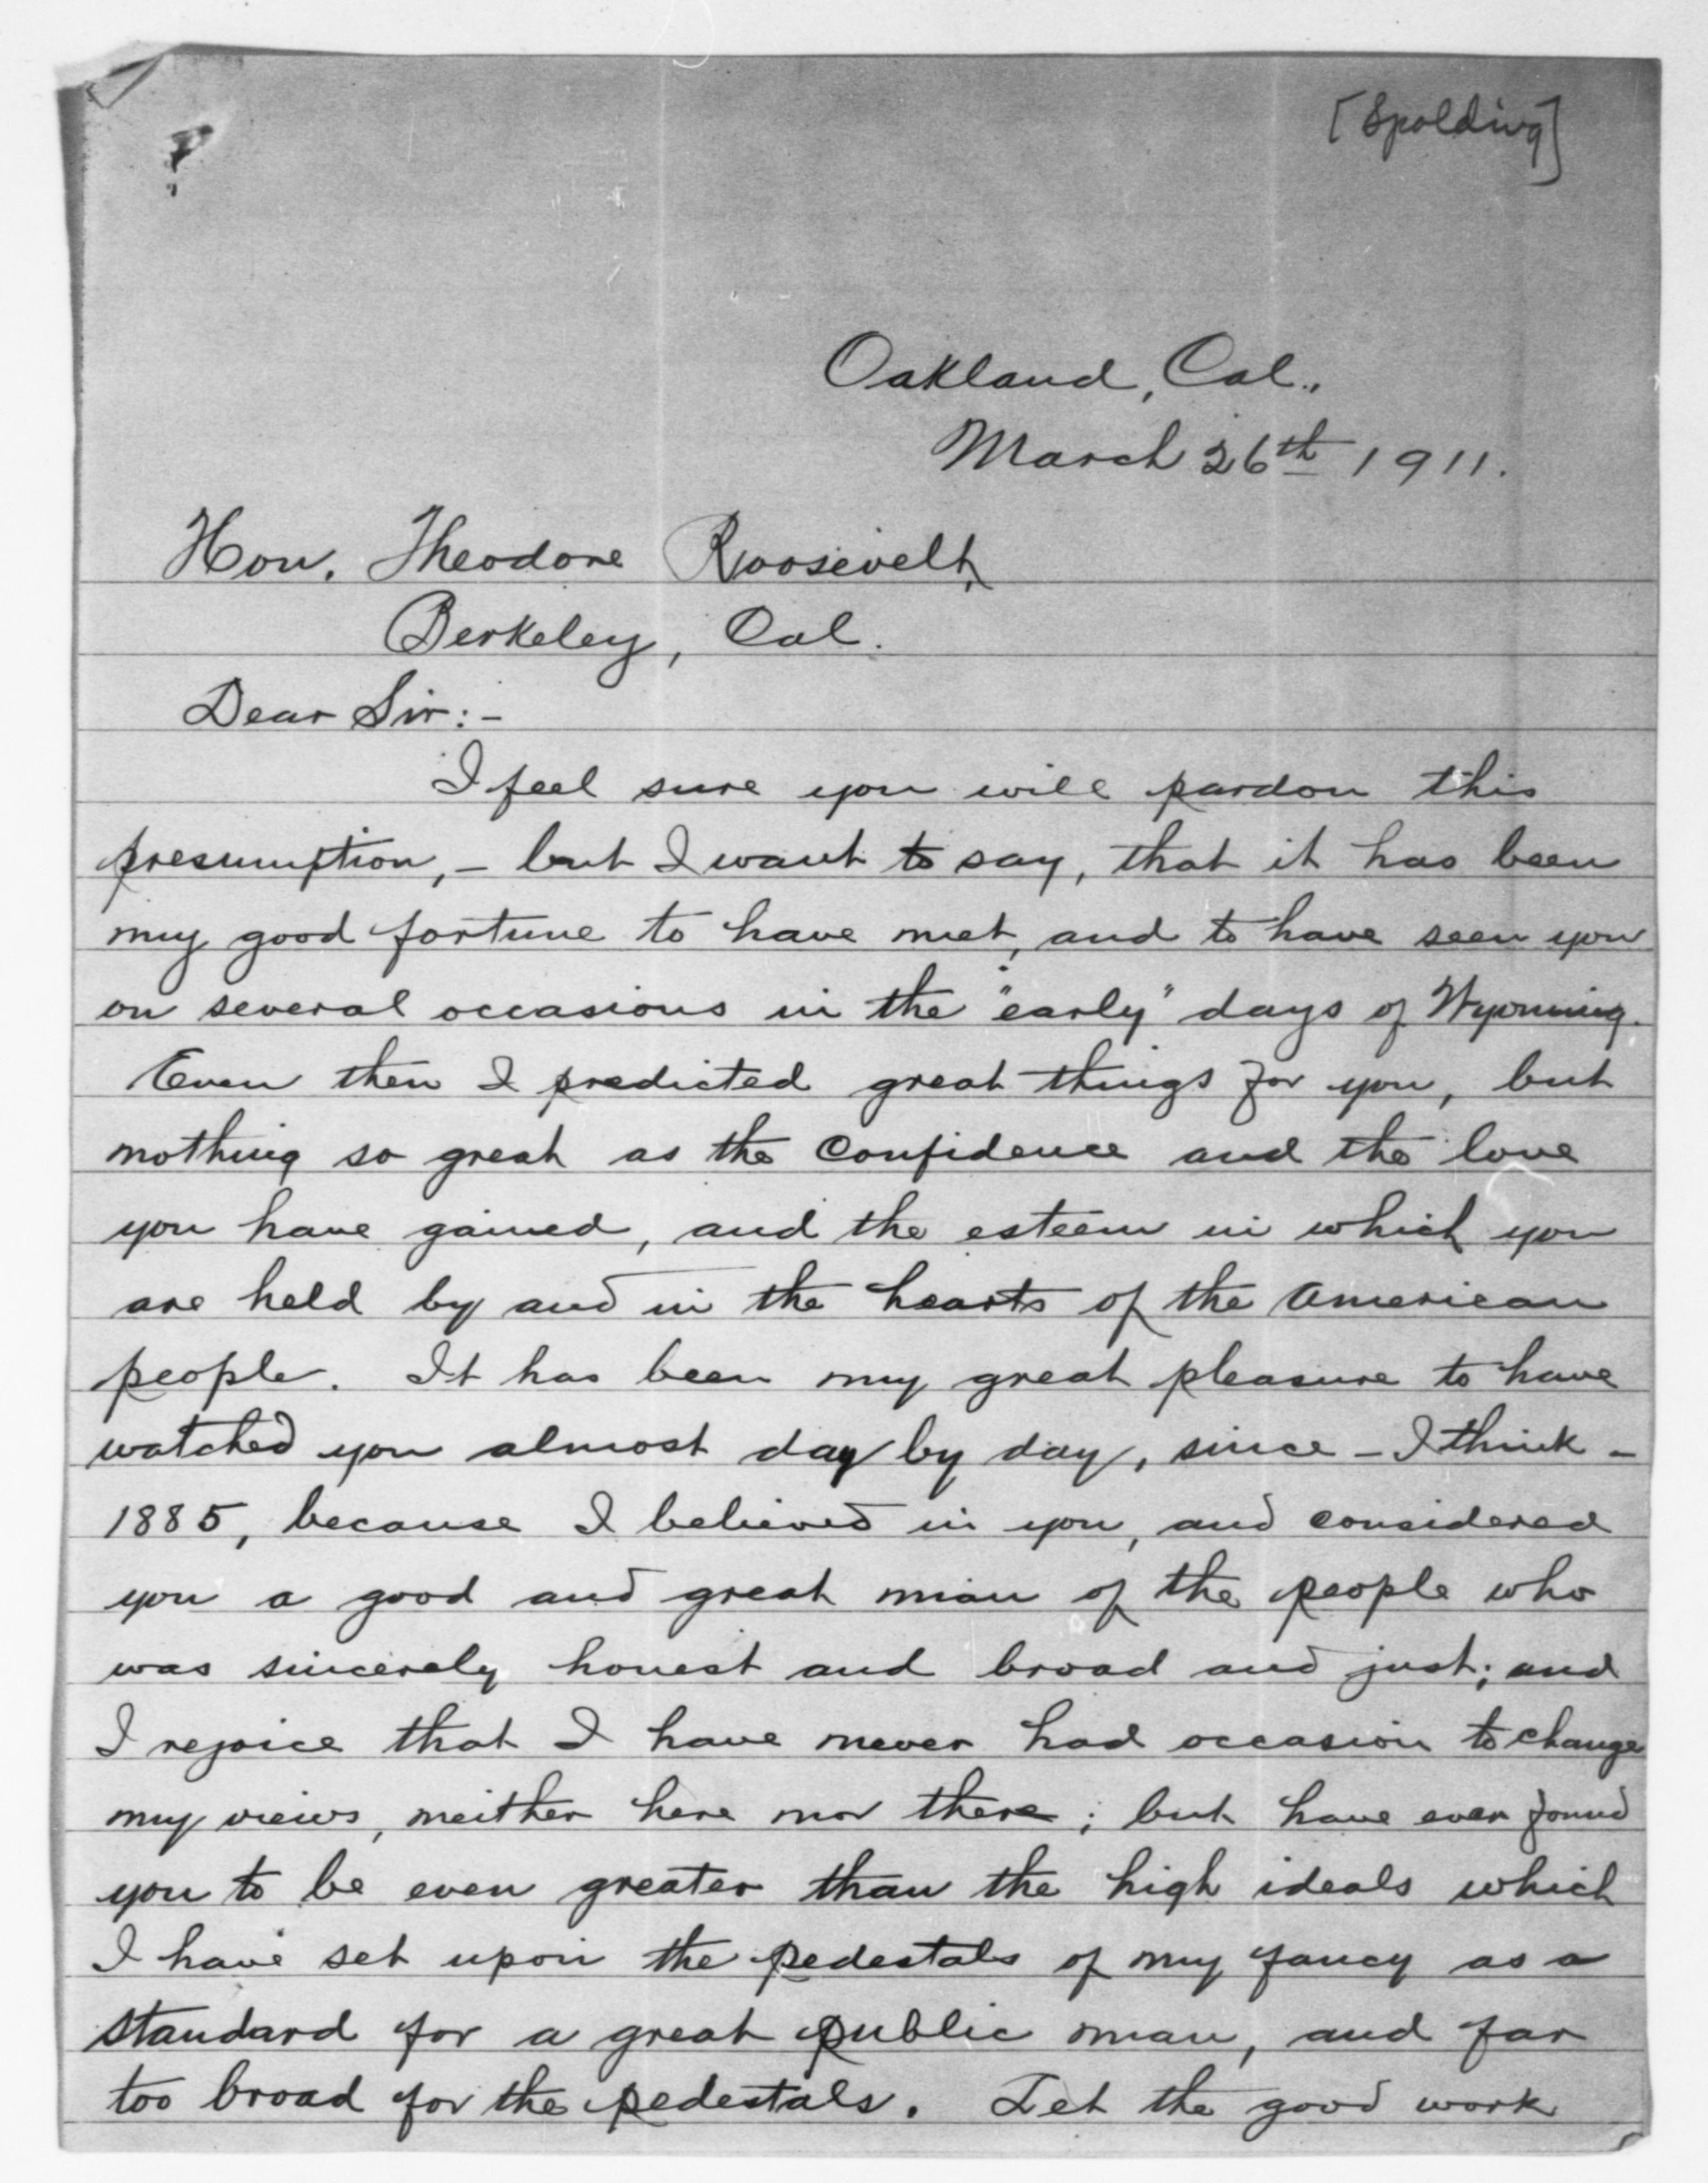 [Spalding]
Oakland, Cal.,
March 26th 1911.
Hon. Theodore Roosevelt,
Berkeley, Cal.
Dear Sir:-
I feel sure you will pardon this
presumption,- but I want to say, that it has been
my good fortune to have met, and to have seen you
on several occasions in the "early" days of Wyoming.
Even then I predicted great things for you, but
nothing so great as the confidence and the love
you have gained, and the esteem in which you
are held by and in the hearts of the American
people. It has been my great pleasure to have
watched you almost day by day, since - I think -
1885, because I believed in you, and considered
you a good and great man of the people who
was sincerely honest and broad and just; and
I rejoice that I have never had occasion to change
my views, neither here nor there; but have ever found
you to be even greater than the high ideals which
I have set upon the pedestals of my fancy as a
standard for a great public man, and far
too broad for the pedestals. Let the good work